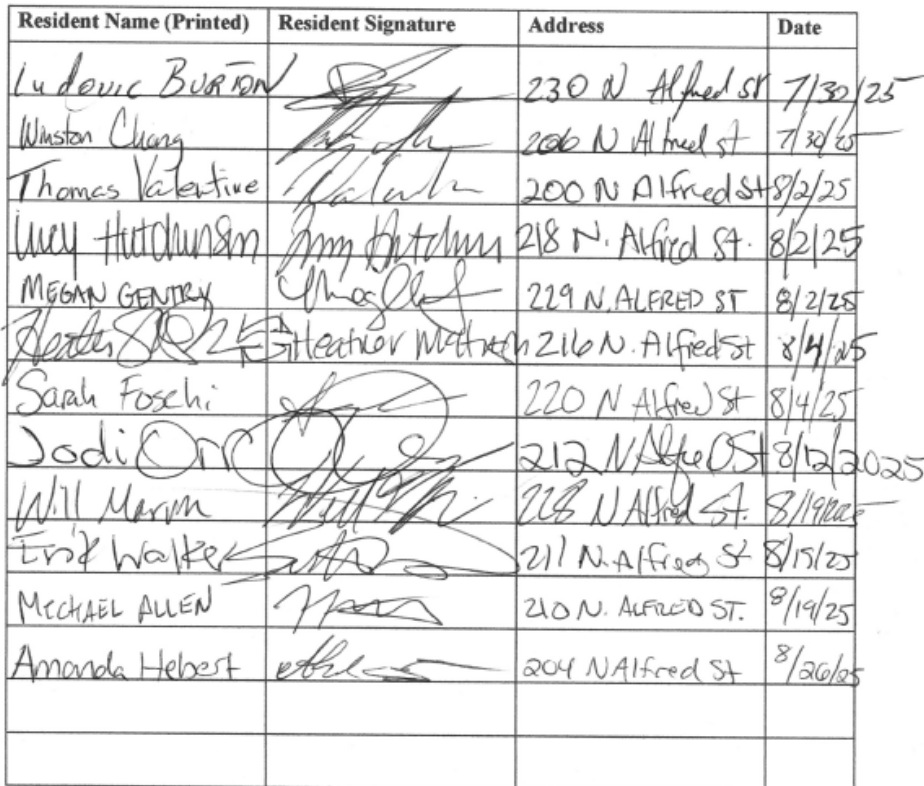 Resident Name (Printed) Resident Signature Address Date
Ludovic BURTON 230 N Alfred St 7/30/25
Winston Chang 206 N Alfred St 7/30/25
Thomas Valentine 200 N Alfred St 8/2/25
Lucy Hutchinson 218 N. Alfred St. 8/2/25
MEGAN GENTRY 229 N. ALFRED ST 8/2/25
Heather Heather 216 N. Alfred St 8/4/25
Sarah Foschi 220 N Alfred St 8/4/25
Jodi Orr 212 N Alfred St 8/12/2025
Will 228 N Alfred St.
Erik Walker 211 N. Alfred St 8/15/25
MICHAEL ALLEN 210 N. ALFRED ST. 8/19/25
Amanda Hebert 204 N Alfred St 8/26/25